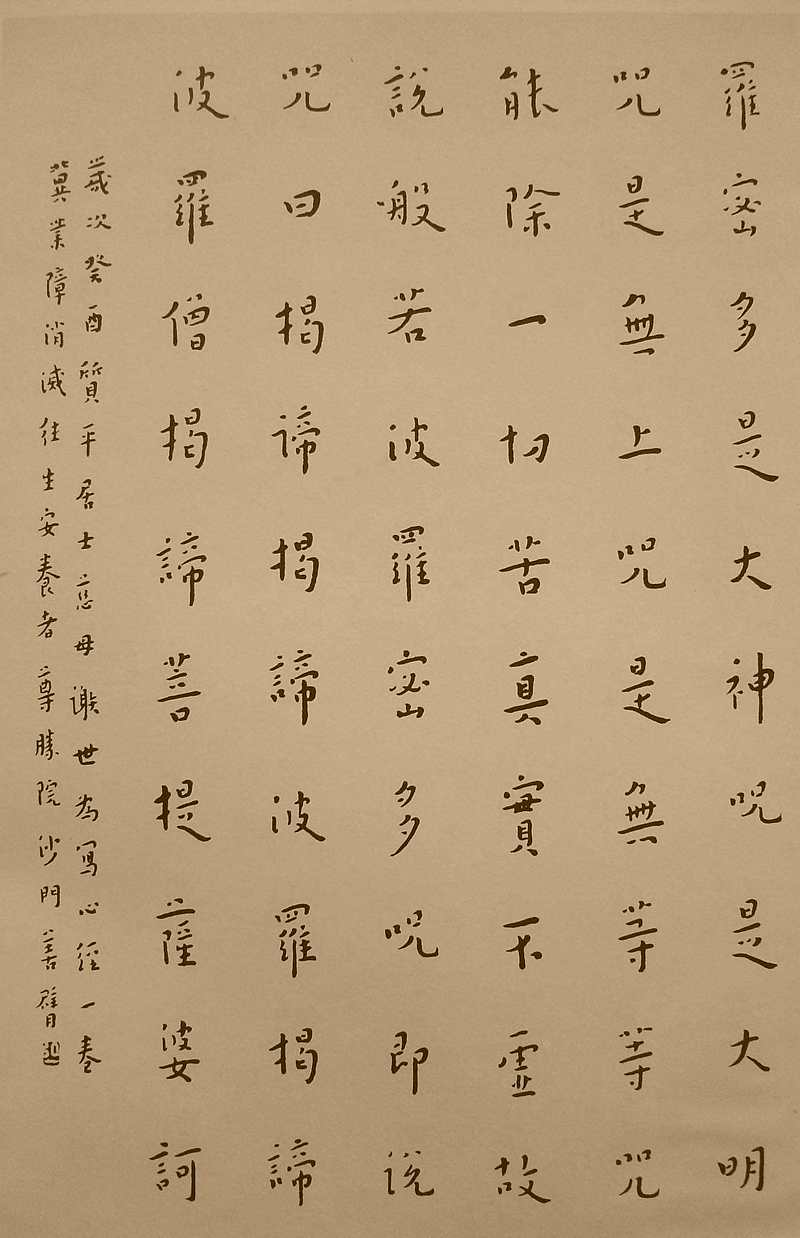 羅密多是大神呪是大明
呪是無上呪是無等等呪
能除一切苦真實不虛故
說般若波羅密多呪即説
呪曰揭諦揭諦波羅揭諦
波羅僧揭諦菩提薩婆訶
歲次癸酉質平居士亡母謝世為寫心經一卷
冀業障消滅往生安養者尊勝院沙門善臂